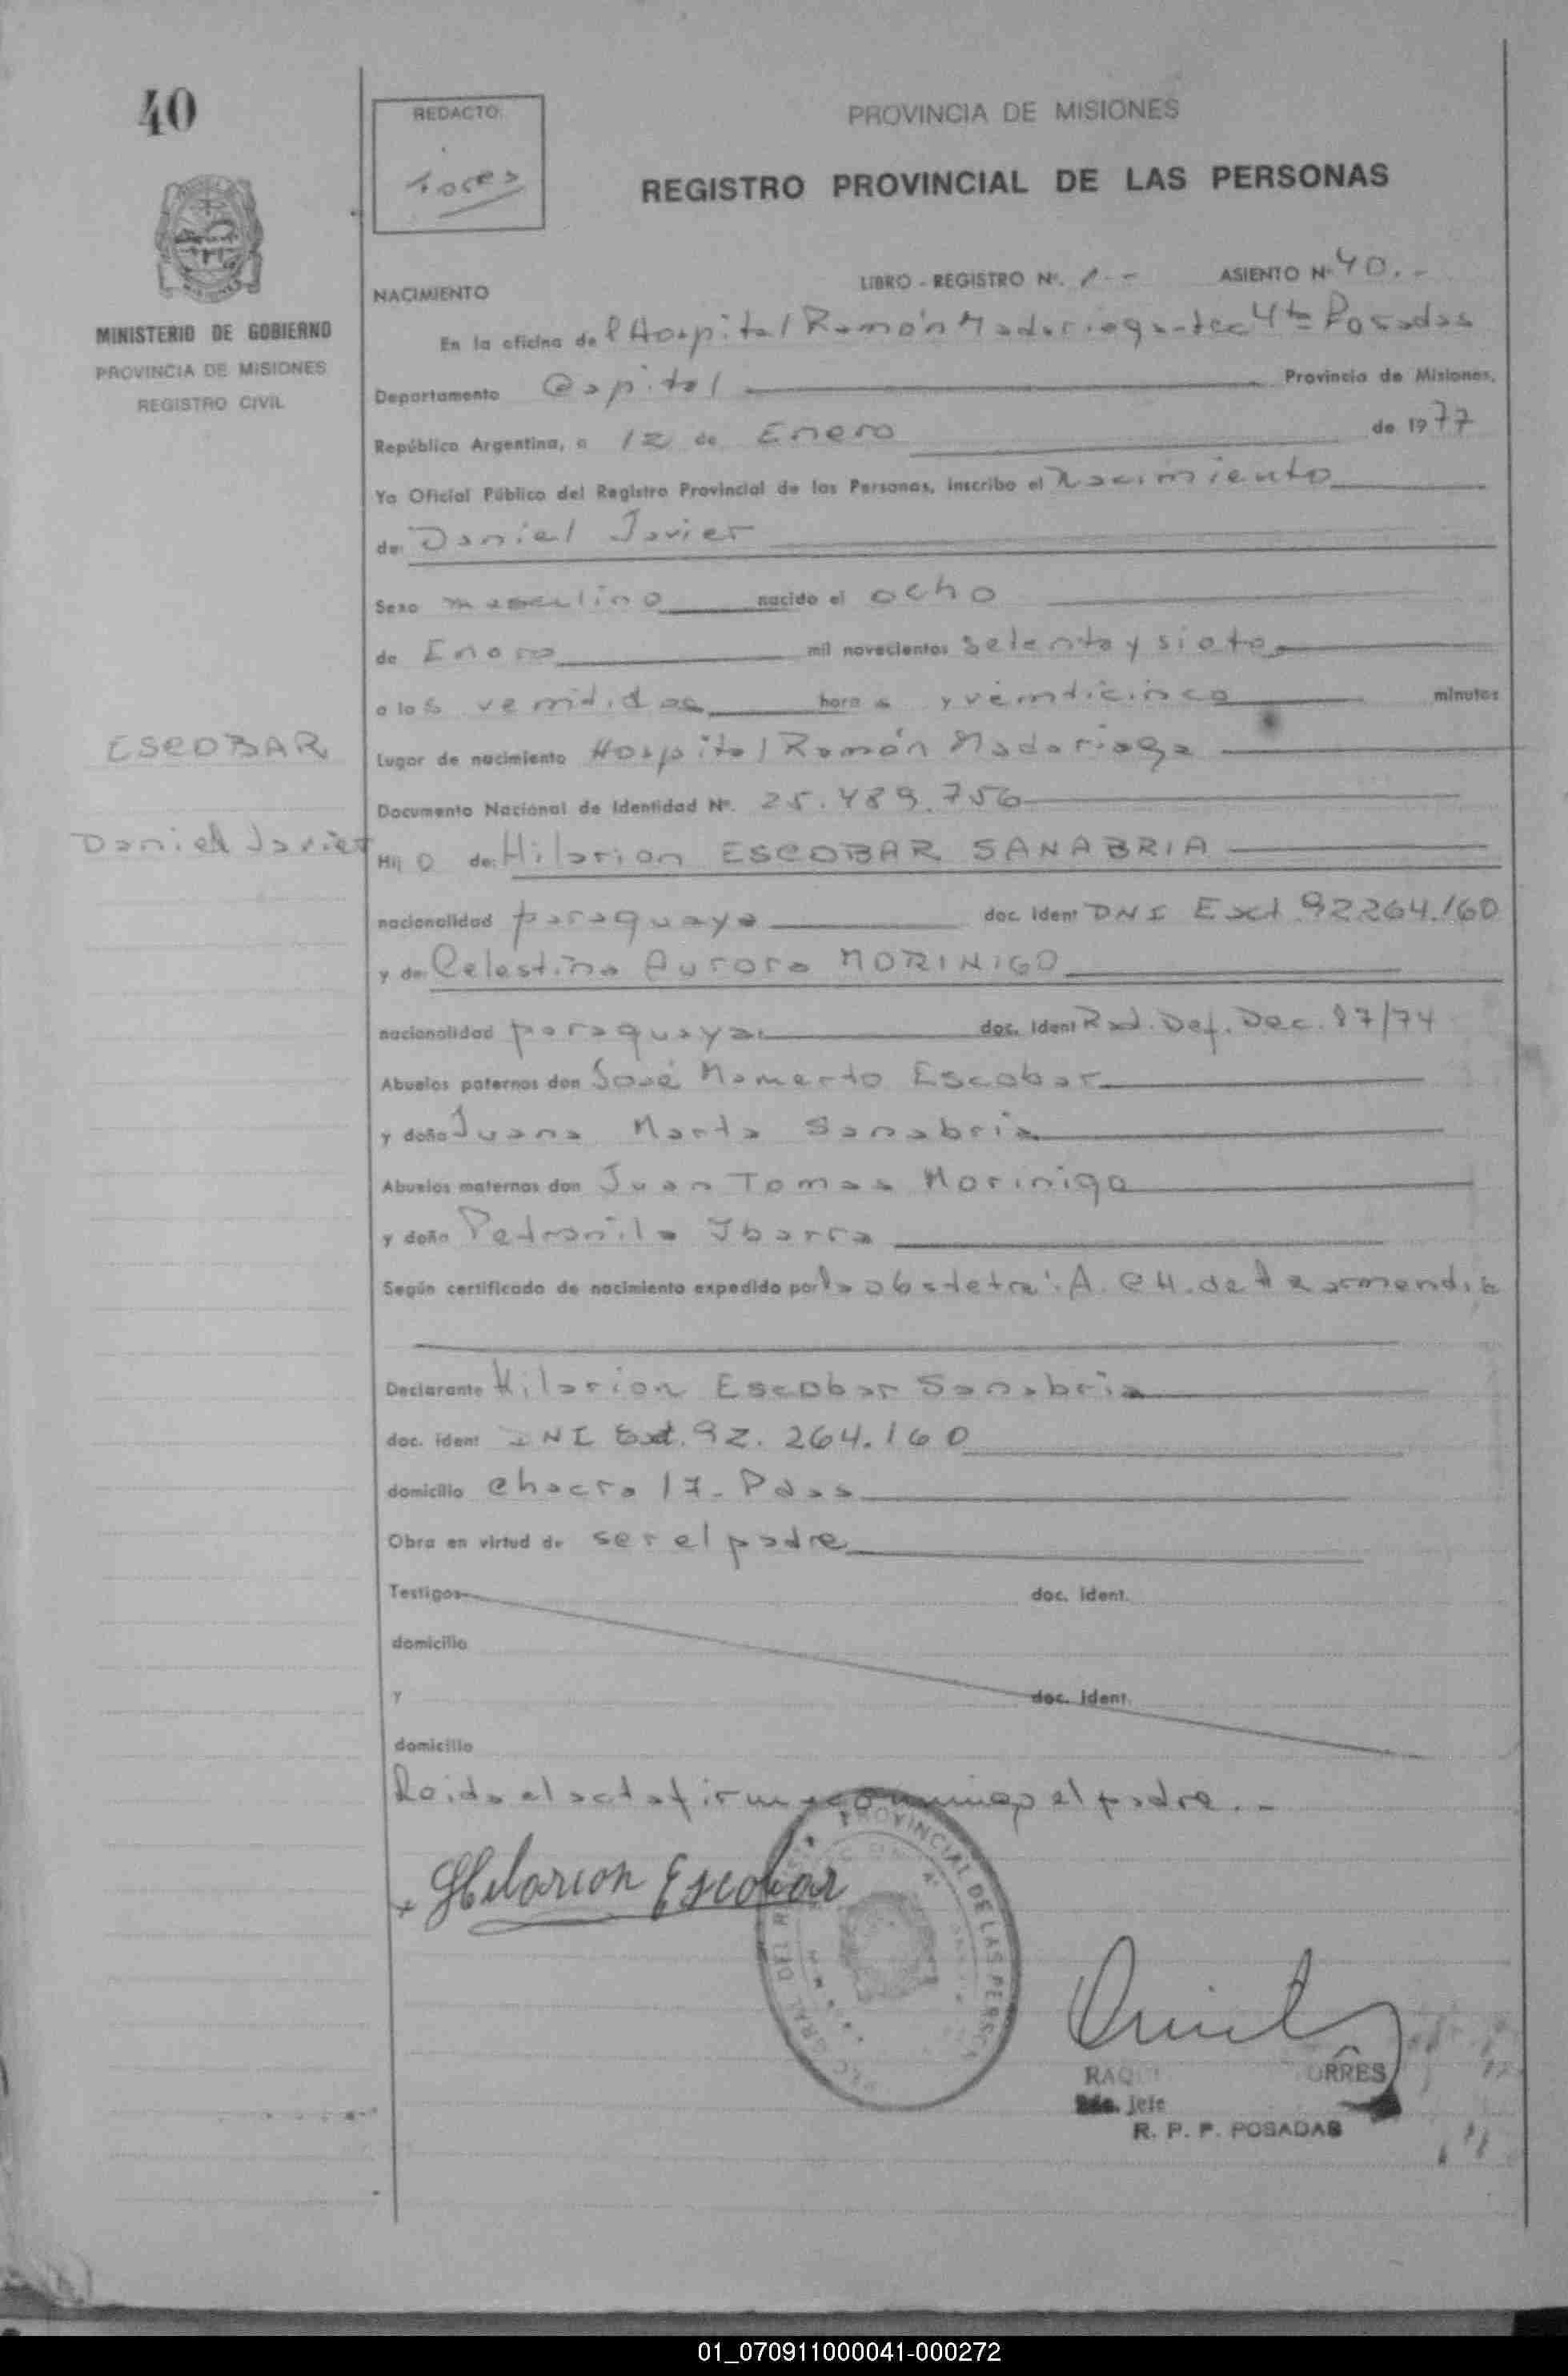 40
REDACTO:
Torres
PROVINCIA DE MISIONES
REGISTRO PROVINCIAL DE LAS PERSONAS
MINISTERIO DE GOBIERNO
PROVINCIA DE MISIONES
REGISTRO CIVIL
NACIMIENTO
LIBRO - REGISTRO Nº. 1-- ASIENTO Nº 40.-
En la oficina del Hospital Ramón Madariaga - Sec 4ta Posadas
Departamento Capital Provincia de Misiones,
República Argentina, a 12 de Enero de 1977
Yo Oficial Público del Registro Provincial de las Personas, inscribo el Nacimiento
de: Daniel Javier
Sexo masculino nacido el ocho
de Enero mil novecientos setenta y siete
a las veintidos horas y veinticinco minutos
ESCOBAR
Daniel Javier
Lugar de nacimiento Hospital Ramón Madariaga
Documento Nacional de Identidad Nº. 25.489.756
Hijo de: Hilarion ESCOBAR SANABRIA
nacionalidad paraguaya doc. ident DNI Ext 92264.160
y de: Celestina Aurora MORINIGO
nacionalidad paraguaya doc. ident Rad. Def. Dec. 87/74
Abuelos paternos don José Mamerto Escobar
y doña Juana Marta Sanabria
Abuelos maternos don Juan Tomas Morinigo
y doña Petronila Ibarra
Según certificado de nacimiento expedido por la obstetra: A. CH. de
Declarante Hilarion Escobar Sanabria
doc. ident DNI Ext. 92.264.160
domicilio Chacra 17- Pdas
Obra en virtud de ser el padre
Testigos doc. ident.
domicilio
y doc. ident.
domicilio
Leida el acta firma conmigo el padre.-
Hilarion Escobar
PROVINCIAL DE LAS PERSO
RAQU ORRES
Jefe
R. P. P. POSADAS
01_070911000041-000272